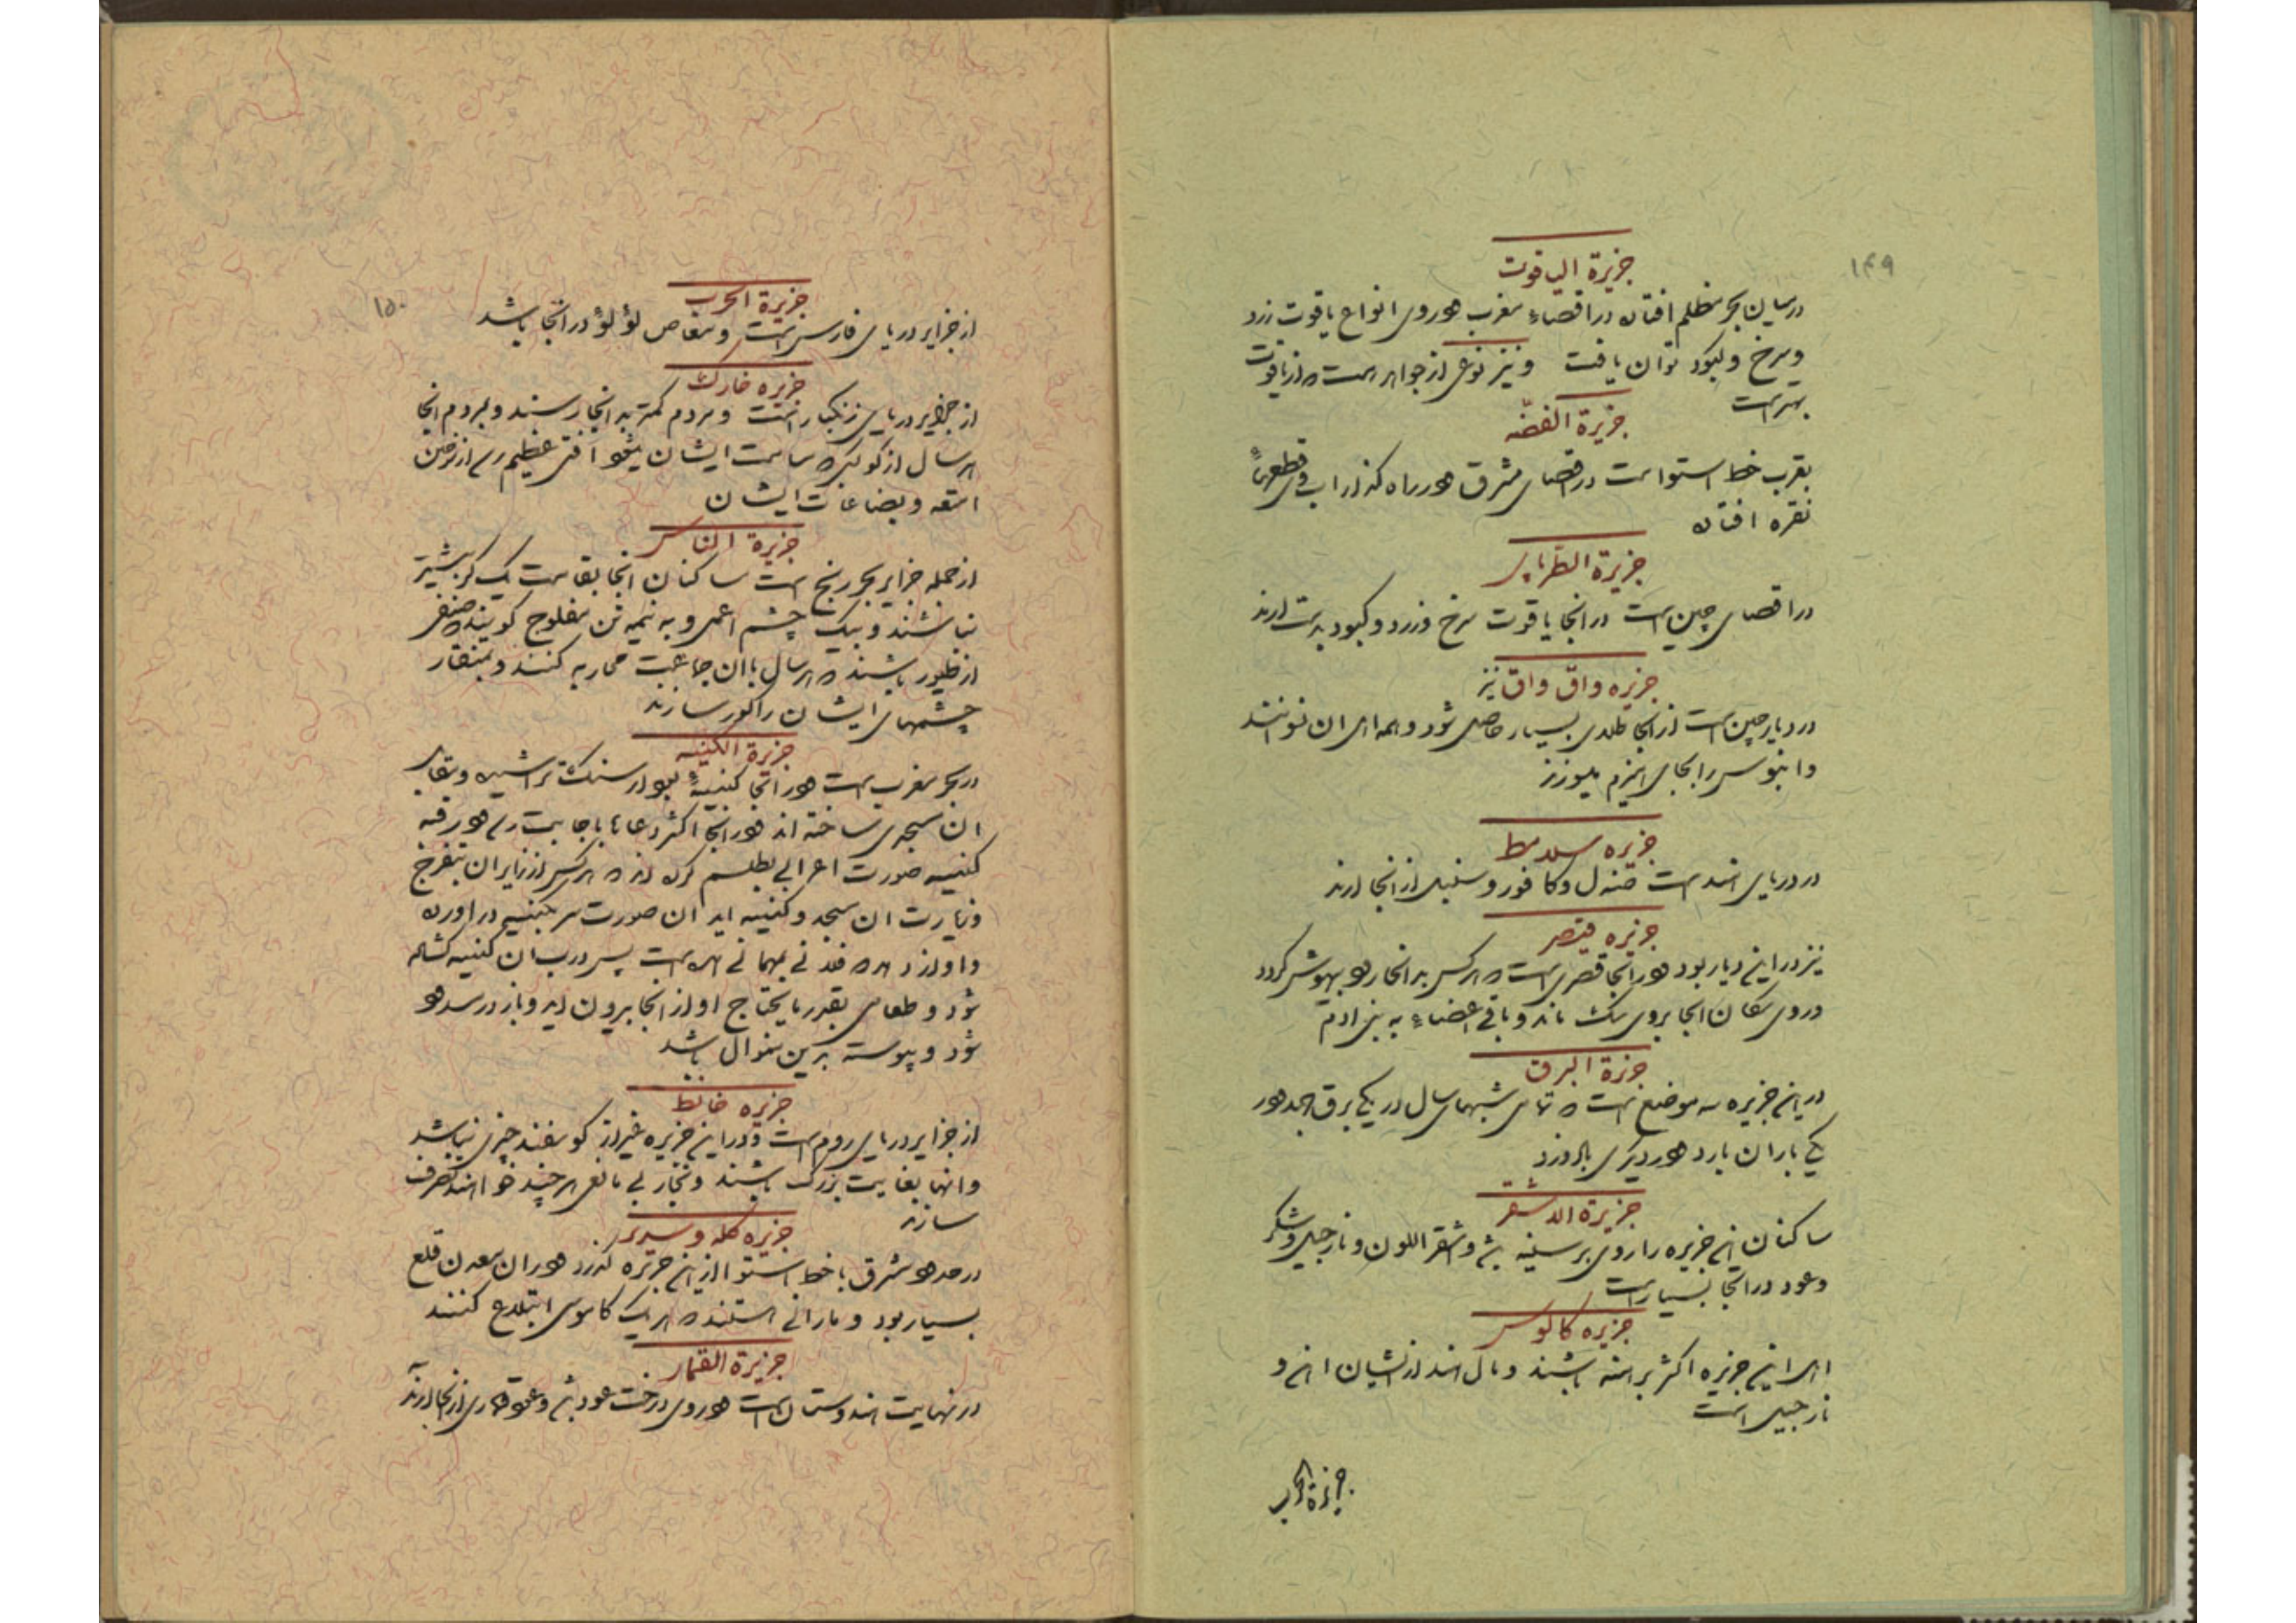 ۱۴۹
جزیرة الیاقوت
درمیان بحر مظلم افتاده در اقصاء مغرب و در وی انواع یاقوت زرد
و سرخ و کبود توان یافت و نیز نوعی از جواهر است که از یاقوت
بهتر است
جزیرة الفضه
بقرب خط استوا است در اقصای مشرق و در راه گذر آب وی قطعهاء
نقره افتاده
جزیرة
در اقصای چین است در انجا یاقوت سرخ و زرد و کبود بدست ارند
جزیره واق واق نیز
در دیار چین است از انجا طلای بسیار حاصل شود و جامهای ان
وا بنوس را بجای هیزم بسوزند
جزیره سلامط
در دریای هند است صندل و کافور و سنبل از انجا ارند
جزیره قیصر
نیز در این دیار بود و در انجا قصری است که هر کس بدانجا رود بیهوش گردد
و روی سکان انجا بروی سگ ماند و باقی اعضاء به بنی ادم
جزیرة البرق
در این جزیره سه موضع است که تمامی شبهای سال در یکی برق جهد و در
یکی باران بارد و در دیگری باد وزد
جزیرة
ساکنان این جزیره را روی بر سینه باشد و اشقر اللون و نارجیل و شکر
و عود در انجا بسیار است
جزیره کالوس
اهل این جزیره اکثر برهنه باشند و مال هند از نشیان اهن و
نارجیل است
جزیرة الحرب
۱۵۰
جزیرة الحرب
از جزایر دریای فارس است و مغاص لؤلؤ در انجا باشد
جزیره خارک
از جزایر دریای زنگبار است و مردم کمتر بدانجا رسند و بمردم انجا
هر سال از کوکبی که سامت ایشان میشود افتی عظیم رسد از سوختن
امتعه و بضاعات ایشان
جزیرة الناس
از جمله جزایر بحر زنج است ساکنان انجا بقامت یک گز بیشتر
نباشند و بیک چشم اعمی و به نیمه تن مفلوج گویند صنفی
از طیور باشند که هر سال با ان جماعت محاربه کنند و بمنقار
چشمهای ایشان را کور سازند
جزیرة الکنیسه
در بحر مغرب است و در انجا کنیسهٔ بود از سنگ تراشیده و مقابل
ان مسجدی ساخته اند و در انجا اکثر دعاها باجابت رسد و در قبه
کنیسه صورت اعرابی بطلسم کرده اند که هر کس از زایران بتفرج
و زیارت ان مسجد و کنیسه اید ان صورت سر بکنیسه دراورده
و اواز دهد که فلانی بمهمانی امده است پس درب ان کنیسه گشاده
شود و طعامی بقدر مایحتاج او از انجا بیرون اید و باز در مسدود
شود و پیوسته برین منوال باشد
جزیره خالط
از جزایر دریای روم است و در این جزیره غیر از گوسفند چیزی نباشد
و انها بغایت بزرگ باشند و تجار بی مانعی هر چند خواهند تصرف
سازند
جزیره کله و سریر
در حدود مشرق با خط استوا از این جزیره گذرد و در ان معدن قلع
بسیار بود و مارانی هستند که هر یک گاومیشی ابتلاع کنند
جزیرة القمار
در نهایت هندوستان است و در وی درخت عود باشد و عود قماری از انجا ارند